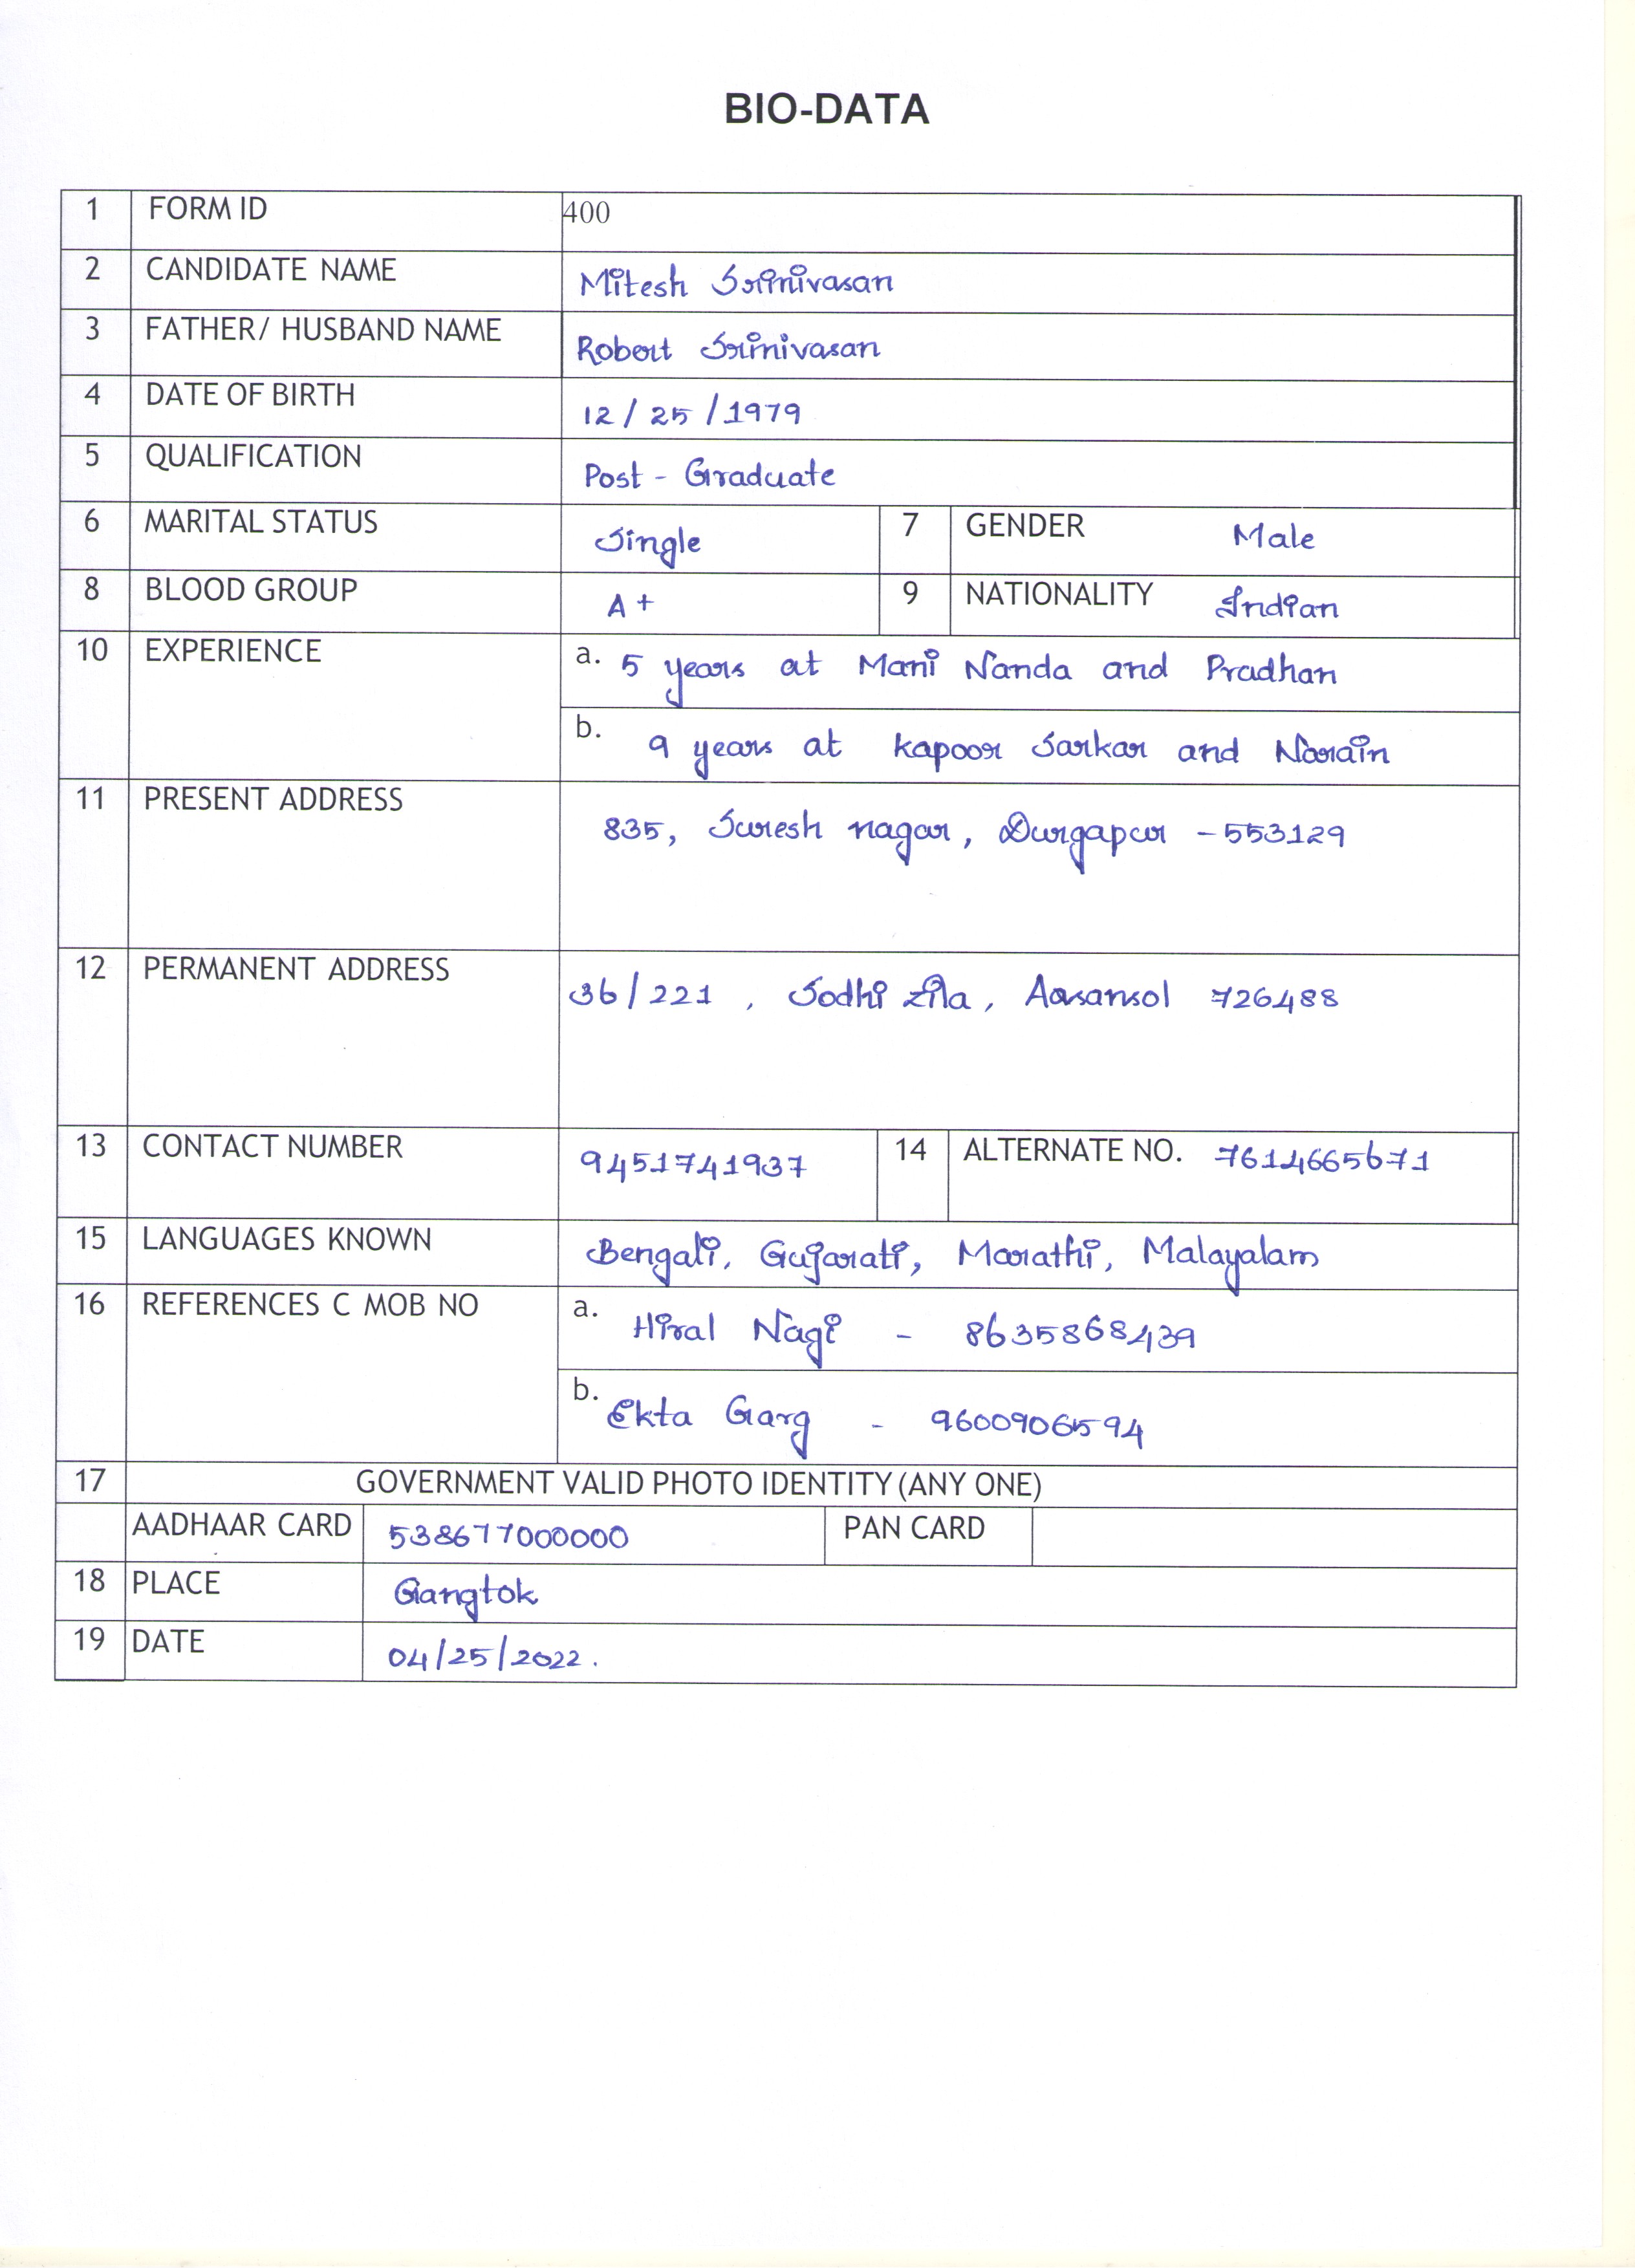 BIO-DATA
1 FORM ID 400
2 CANDIDATE NAME Mitesh Srinivasan
3 FATHER/ HUSBAND NAME Robert Srinivasan
4 DATE OF BIRTH 12/25/1979
5 QUALIFICATION Post - Graduate
6 MARITAL STATUS Single 7 GENDER Male
8 BLOOD GROUP A+ 9 NATIONALITY Indian
10 EXPERIENCE a. 5 years at Mani Nanda and Pradhan
b. 9 years at Kapoor Sarkar and Narain
11 PRESENT ADDRESS 835, Suresh nagar, Durgapur - 553129
12 PERMANENT ADDRESS 36/221, Sodhi Zila, Aasansol 726488
13 CONTACT NUMBER 9451741937 14 ALTERNATE NO. 7614665671
15 LANGUAGES KNOWN Bengali, Gujarati, Marathi, Malayalam
16 REFERENCES C MOB NO a. Hiral Nagi - 8635868439
b. Ekta Garg - 9600906594
17 GOVERNMENT VALID PHOTO IDENTITY (ANY ONE)
AADHAAR CARD 538677000000 PAN CARD
18 PLACE Gangtok
19 DATE 04/25/2022.